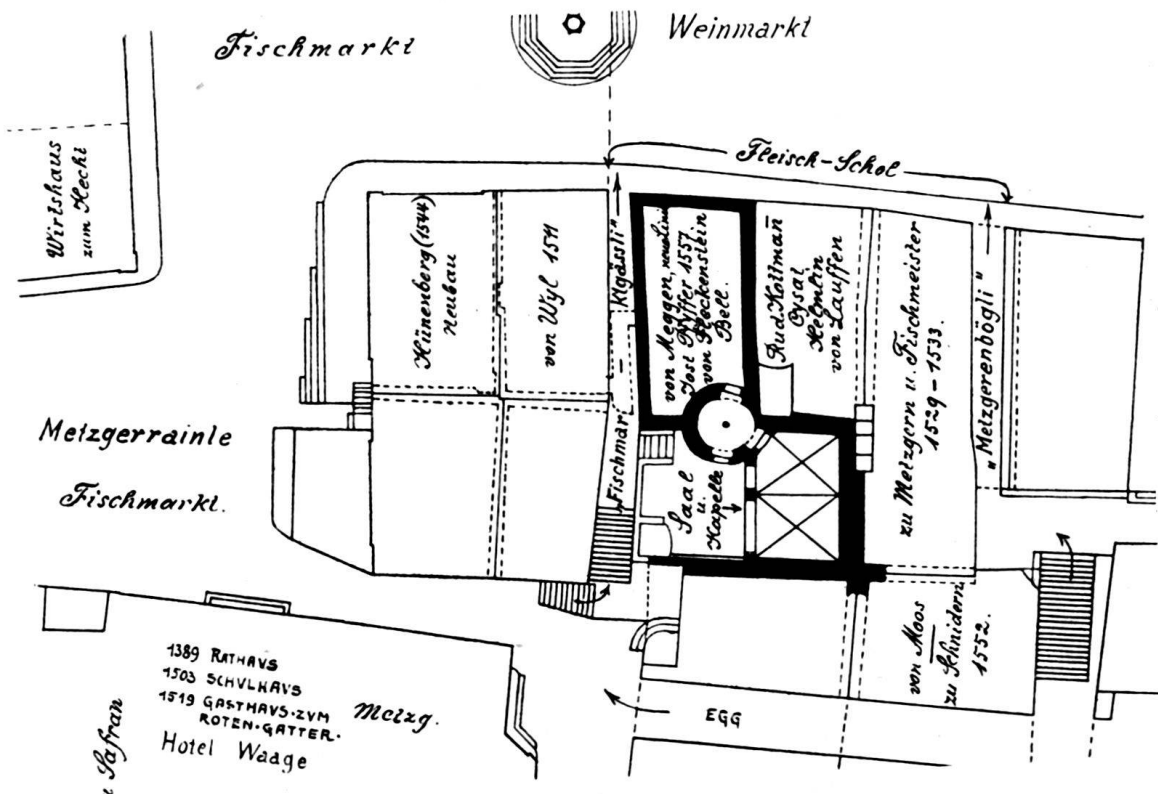 Fischmarkt
Weinmarkt
Wirtshaus
zum Hecht
Fleisch-Schol
Hünenberg (1544)
Neubau
von Wyl 1541
"Fischmar-ktgässli"
von Meggen,
Jost Pfyffer 1557
von Fleckenstein
Bell.
Rud Kottman̄
Cysat
Helmlin
von Lauffen
zu Metzgern u. Fischmeister
1529-1533.
"Metzgerenbögli"
Metzgerrainle
Fischmarkt.
Saal
u.
Kapelle
von Moos
zu Schnidern
1552.
1389 RATHAVS
1503 SCHVLHAVS
1519 GASTHAVS·ZVM
ROTEN·GATTER·
Metzg.
Hotel Waage
EGG
Safran